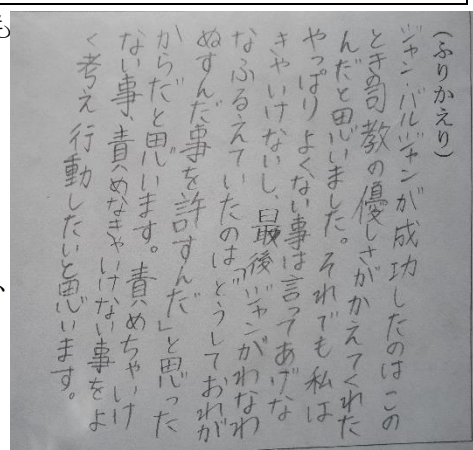 (ふりかえり)
ジャン・バルジャンが成功したのはこの
とき司教の優しさがかえてくれた
んだと思いました。それでも私は
やっぱりよくない事は言ってあげな
きゃいけないし、最後ジャンがわなわ
なふるえていたのは「どうしておれが
ぬすんだ事を許すんだ」と思った
からだと思います。責めちゃいけ
ない事、責めなきゃいけない事をよ
く考え行動したいと思います。